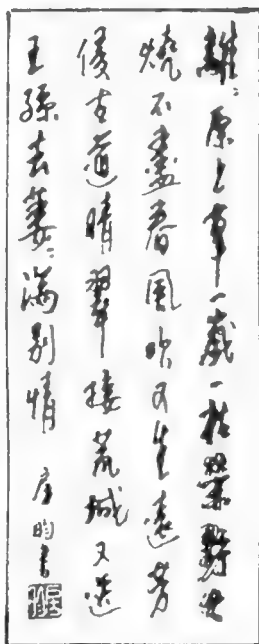 離〻原上草一歲一枯榮野火
燒不盡春風吹又生遠芳
侵古道晴翠接荒城又送
王孫去萋〻滿別情 唐昀書